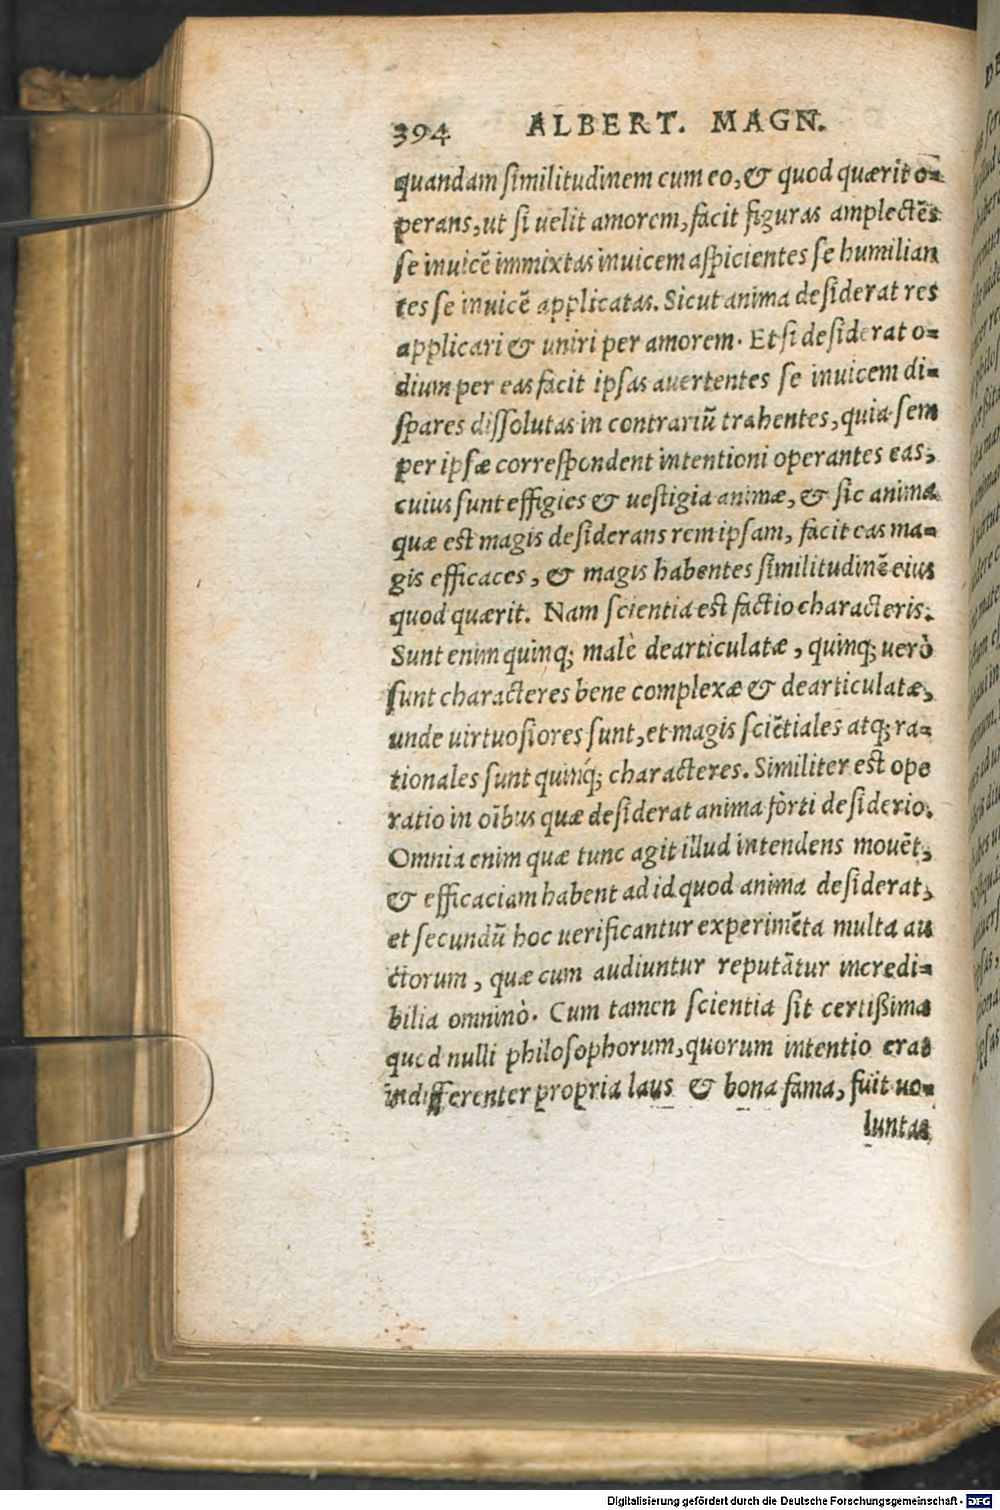 394 ALBERT. MAGN.
quandam ſimilitudinem cum eo, & quod quærit o=
perans, ut ſi uelit amorem, facit figuras amplectẽs
ſe inuicẽ immixtas inuicem aſpicientes ſe humilian
tes ſe inuicẽ applicatas. Sicut anima deſiderat res
applicari & uniri per amorem. Et ſi deſiderat o=
dium per eas facit ipſas auertentes ſe inuicem di=
ſpares diſſolutas in contrariũ trahentes, quia ſem
per ipſæ correſpondent intentioni operantes eas,
cuius ſunt effigies & ueſtigia animæ, & ſic anima
quæ eſt magis deſiderans rem ipſam, facit eas ma=
gis efficaces, & magis habentes ſimilitudinẽ eius
quod quærit. Nam ſcientia eſt factio characteris.
Sunt enim quinq; malè dearticulatæ, quinq; uerò
ſunt characteres bene complexæ & dearticulatæ,
unde uirtuoſiores ſunt, et magis ſciẽtiales atq; ra=
tionales ſunt quinq́; characteres. Similiter eſt ope
ratio in oĩbus quæ deſiderat anima forti deſiderio.
Omnia enim quæ tunc agit illud intendens mouẽt,
& efficaciam habent ad id quod anima deſiderat,
et ſecundũ hoc uerificantur experimẽta multa au
ctorum, quæ cum audiuntur reputãtur incredi=
bilia omninò. Cum tamen ſcientia ſit certißima
quod nulli philoſophorum, quorum intentio erat
indifferenter propria laus & bona fama, fuit uo=
luntas
Digitalisierung gefördert durch die Deutsche Forschungsgemeinschaft - DFG